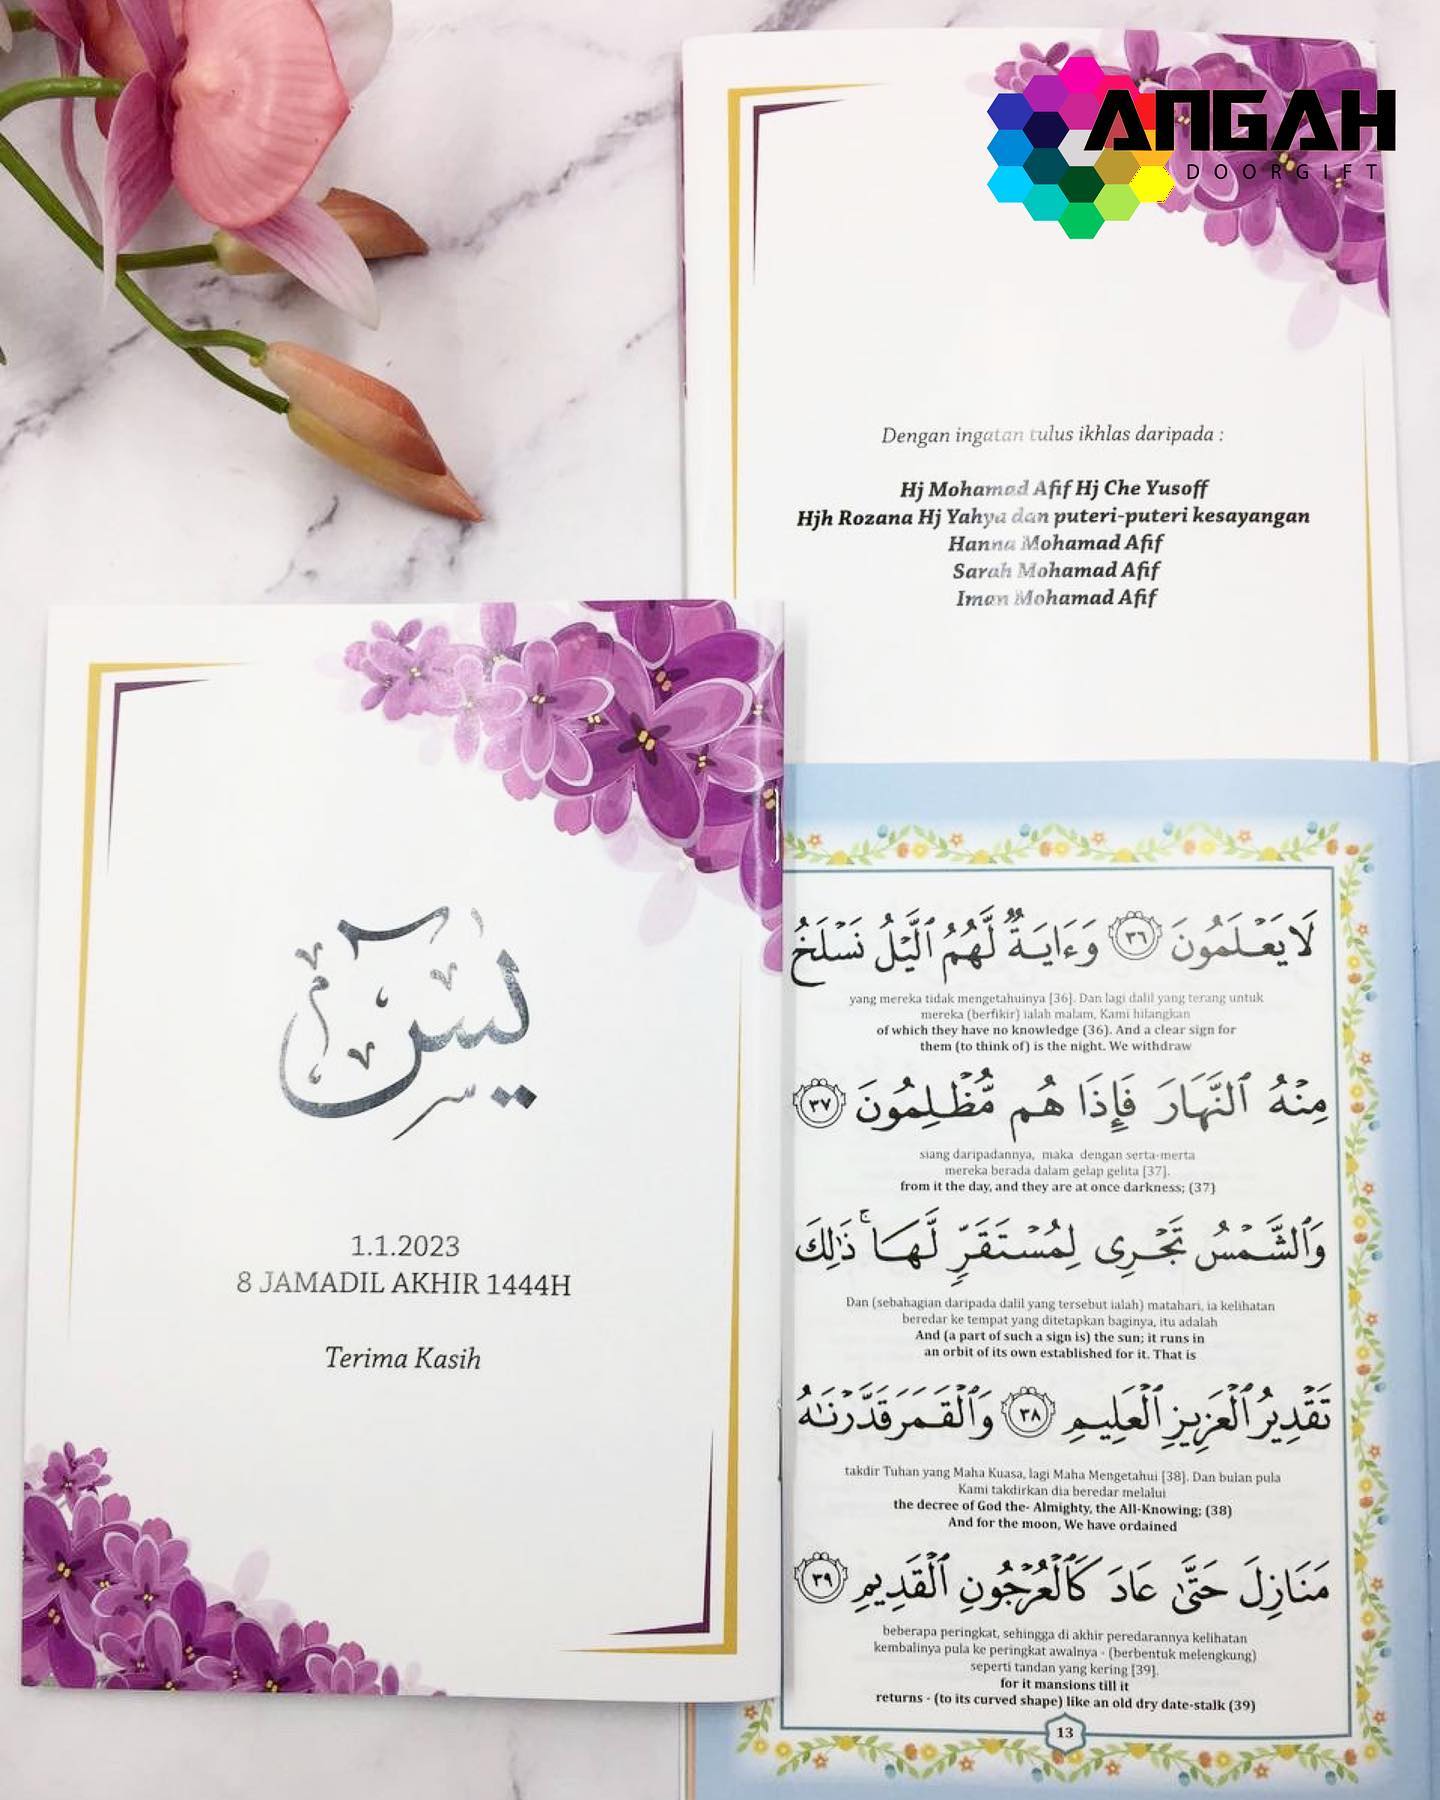 ANGAH
DOORGIFT
Dengan ingatan tulus ikhlas daripada :
Hj Mohamad Afif Hj Che Yusoff
Hjh Rozana Hj Yahya dan puteri-puteri kesayangan
Hanna Mohamad Afif
Sarah Mohamad Afif
Iman Mohamad Afif
يس
1.1.2023
8 JAMADIL AKHIR 1444H
Terima Kasih
لَا يَعْلَمُونَ ٣٦ وَءَايَةٌ لَّهُمُ ٱلَّيْلُ نَسْلَخُ
yang mereka tidak mengetahuinya [36]. Dan lagi dalil yang terang untuk
mereka (berfikir) ialah malam, Kami hilangkan
of which they have no knowledge (36). And a clear sign for
them (to think of) is the night. We withdraw
مِنْهُ ٱلنَّهَارَ فَإِذَا هُم مُّظْلِمُونَ ٣٧
siang daripadannya, maka dengan serta-merta
mereka berada dalam gelap gelita [37].
from it the day, and they are at once darkness; (37)
وَٱلشَّمْسُ تَجْرِى لِمُسْتَقَرٍّ لَّهَا ۚ ذَٰلِكَ
Dan (sebahagian daripada dalil yang tersebut ialah) matahari, ia kelihatan
beredar ke tempat yang ditetapkan baginya, itu adalah
And (a part of such a sign is) the sun; it runs in
an orbit of its own established for it. That is
تَقْدِيرُ ٱلْعَزِيزِ ٱلْعَلِيمِ ٣٨ وَٱلْقَمَرَ قَدَّرْنَٰهُ
takdir Tuhan yang Maha Kuasa, lagi Maha Mengetahui [38]. Dan bulan pula
Kami takdirkan dia beredar melalui
the decree of God the- Almighty, the All-Knowing; (38)
And for the moon, We have ordained
مَنَازِلَ حَتَّىٰ عَادَ كَٱلْعُرْجُونِ ٱلْقَدِيمِ ٣٩
beberapa peringkat, sehingga di akhir peredarannya kelihatan
kembalinya pula ke peringkat awalnya - (berbentuk melengkung)
seperti tandan yang kering [39].
for it mansions till it
returns - (to its curved shape) like an old dry date-stalk (39)
13